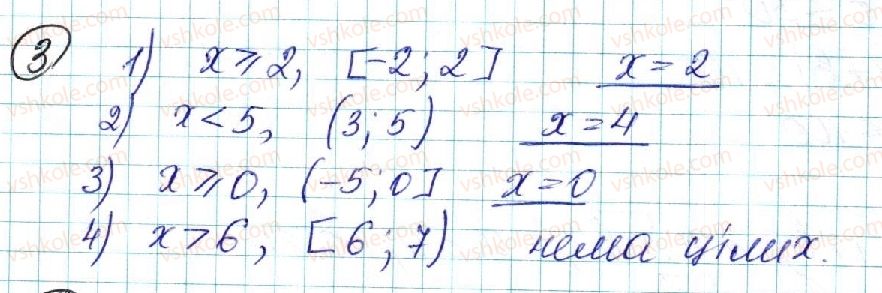 3 1) x ⩾ 2, [-2; 2] x = 2
2) x < 5, (3; 5) x = 4
3) x ⩾ 0, (-5; 0] x = 0
4) x > 6, [6; 7) нема цілих.